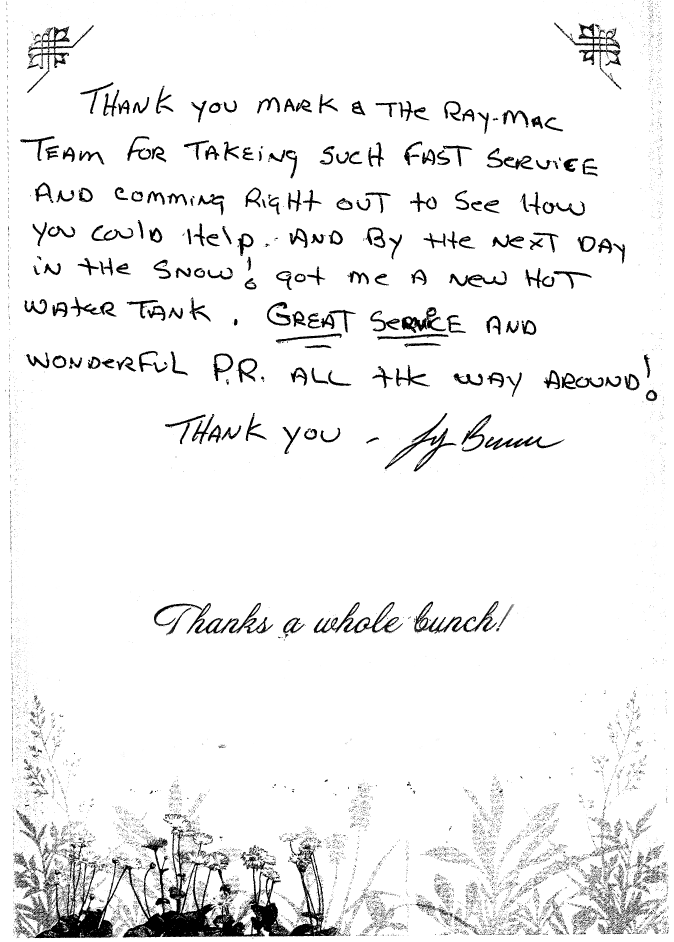 THANK you MARK & THE RAY-MAC
TEAM FOR TAKEING SUCH FAST SERVICE
AND COMMING RIGHT OUT to See How
you could Help. AND By the NEXT DAY
in the SNOW! got me A NEW HOT
WATER TANK. GREAT SERVICE AND
WONDERFUL P.R. ALL the WAY AROUND!
THANK you -
Thanks a whole bunch!